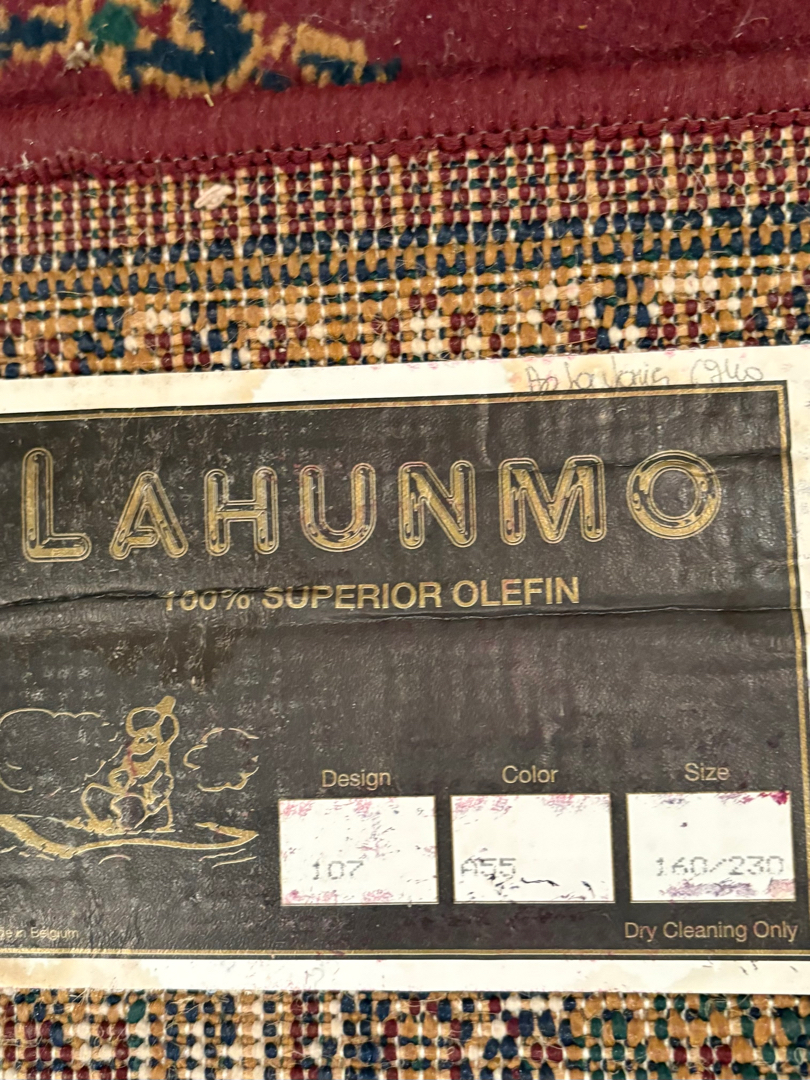 LAHUNMO
100% SUPERIOR OLEFIN
Design
Color
Size
107
A55
160/230
in Belgium
Dry Cleaning Only